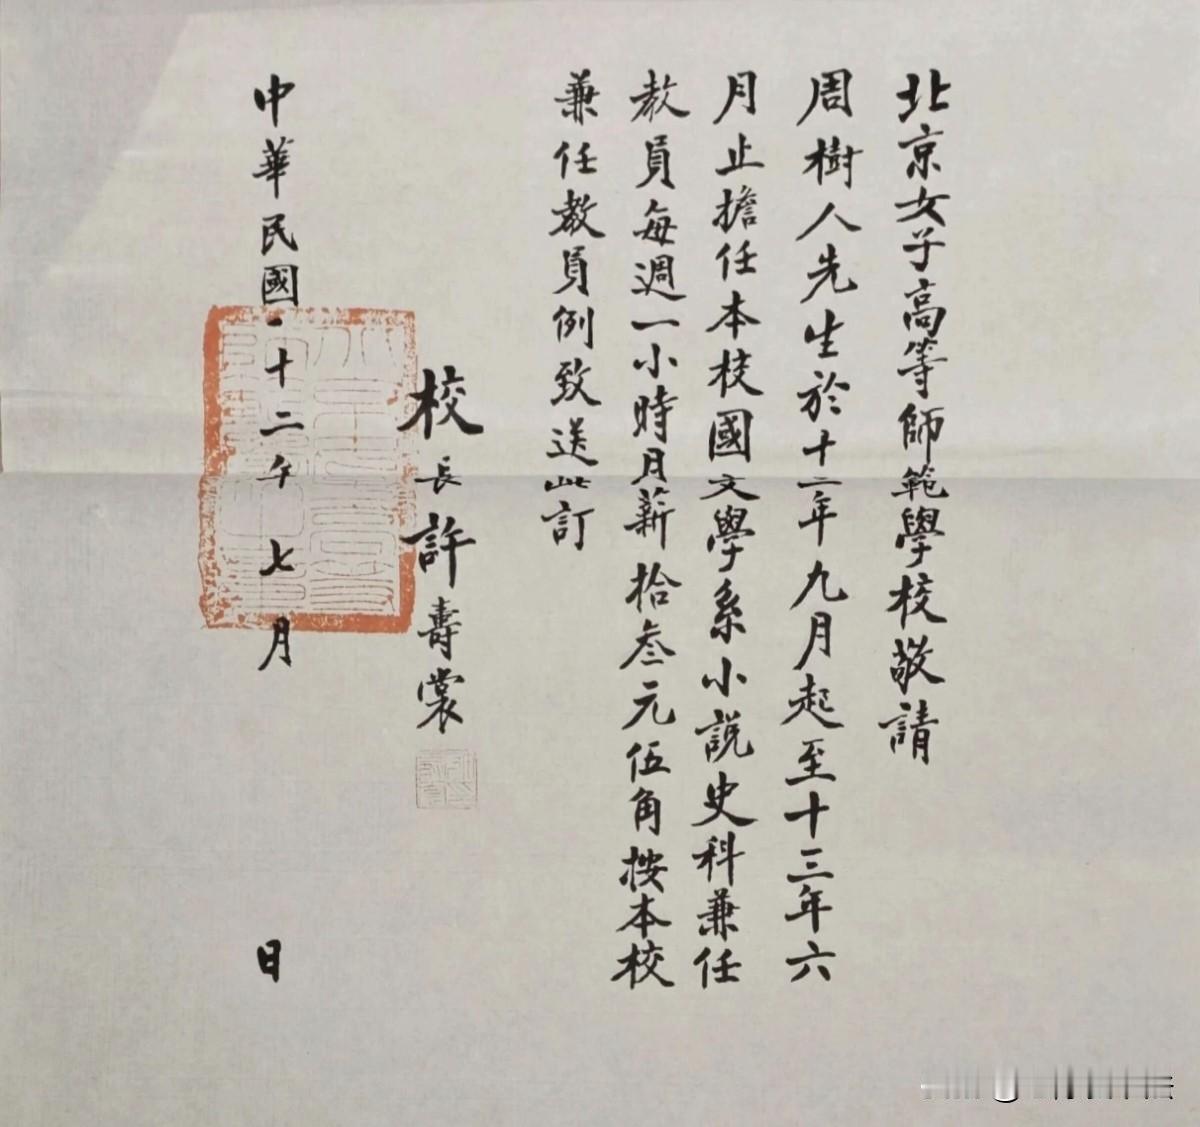 北京女子高等師範學校敬請
周樹人先生於十二年九月起至十三年六
月止擔任本校國文學系小說史科兼任
教員每週一小時月薪拾叁元伍角按本校
兼任教員例致送此訂
校長許壽裳
中華民國十二年七月 日